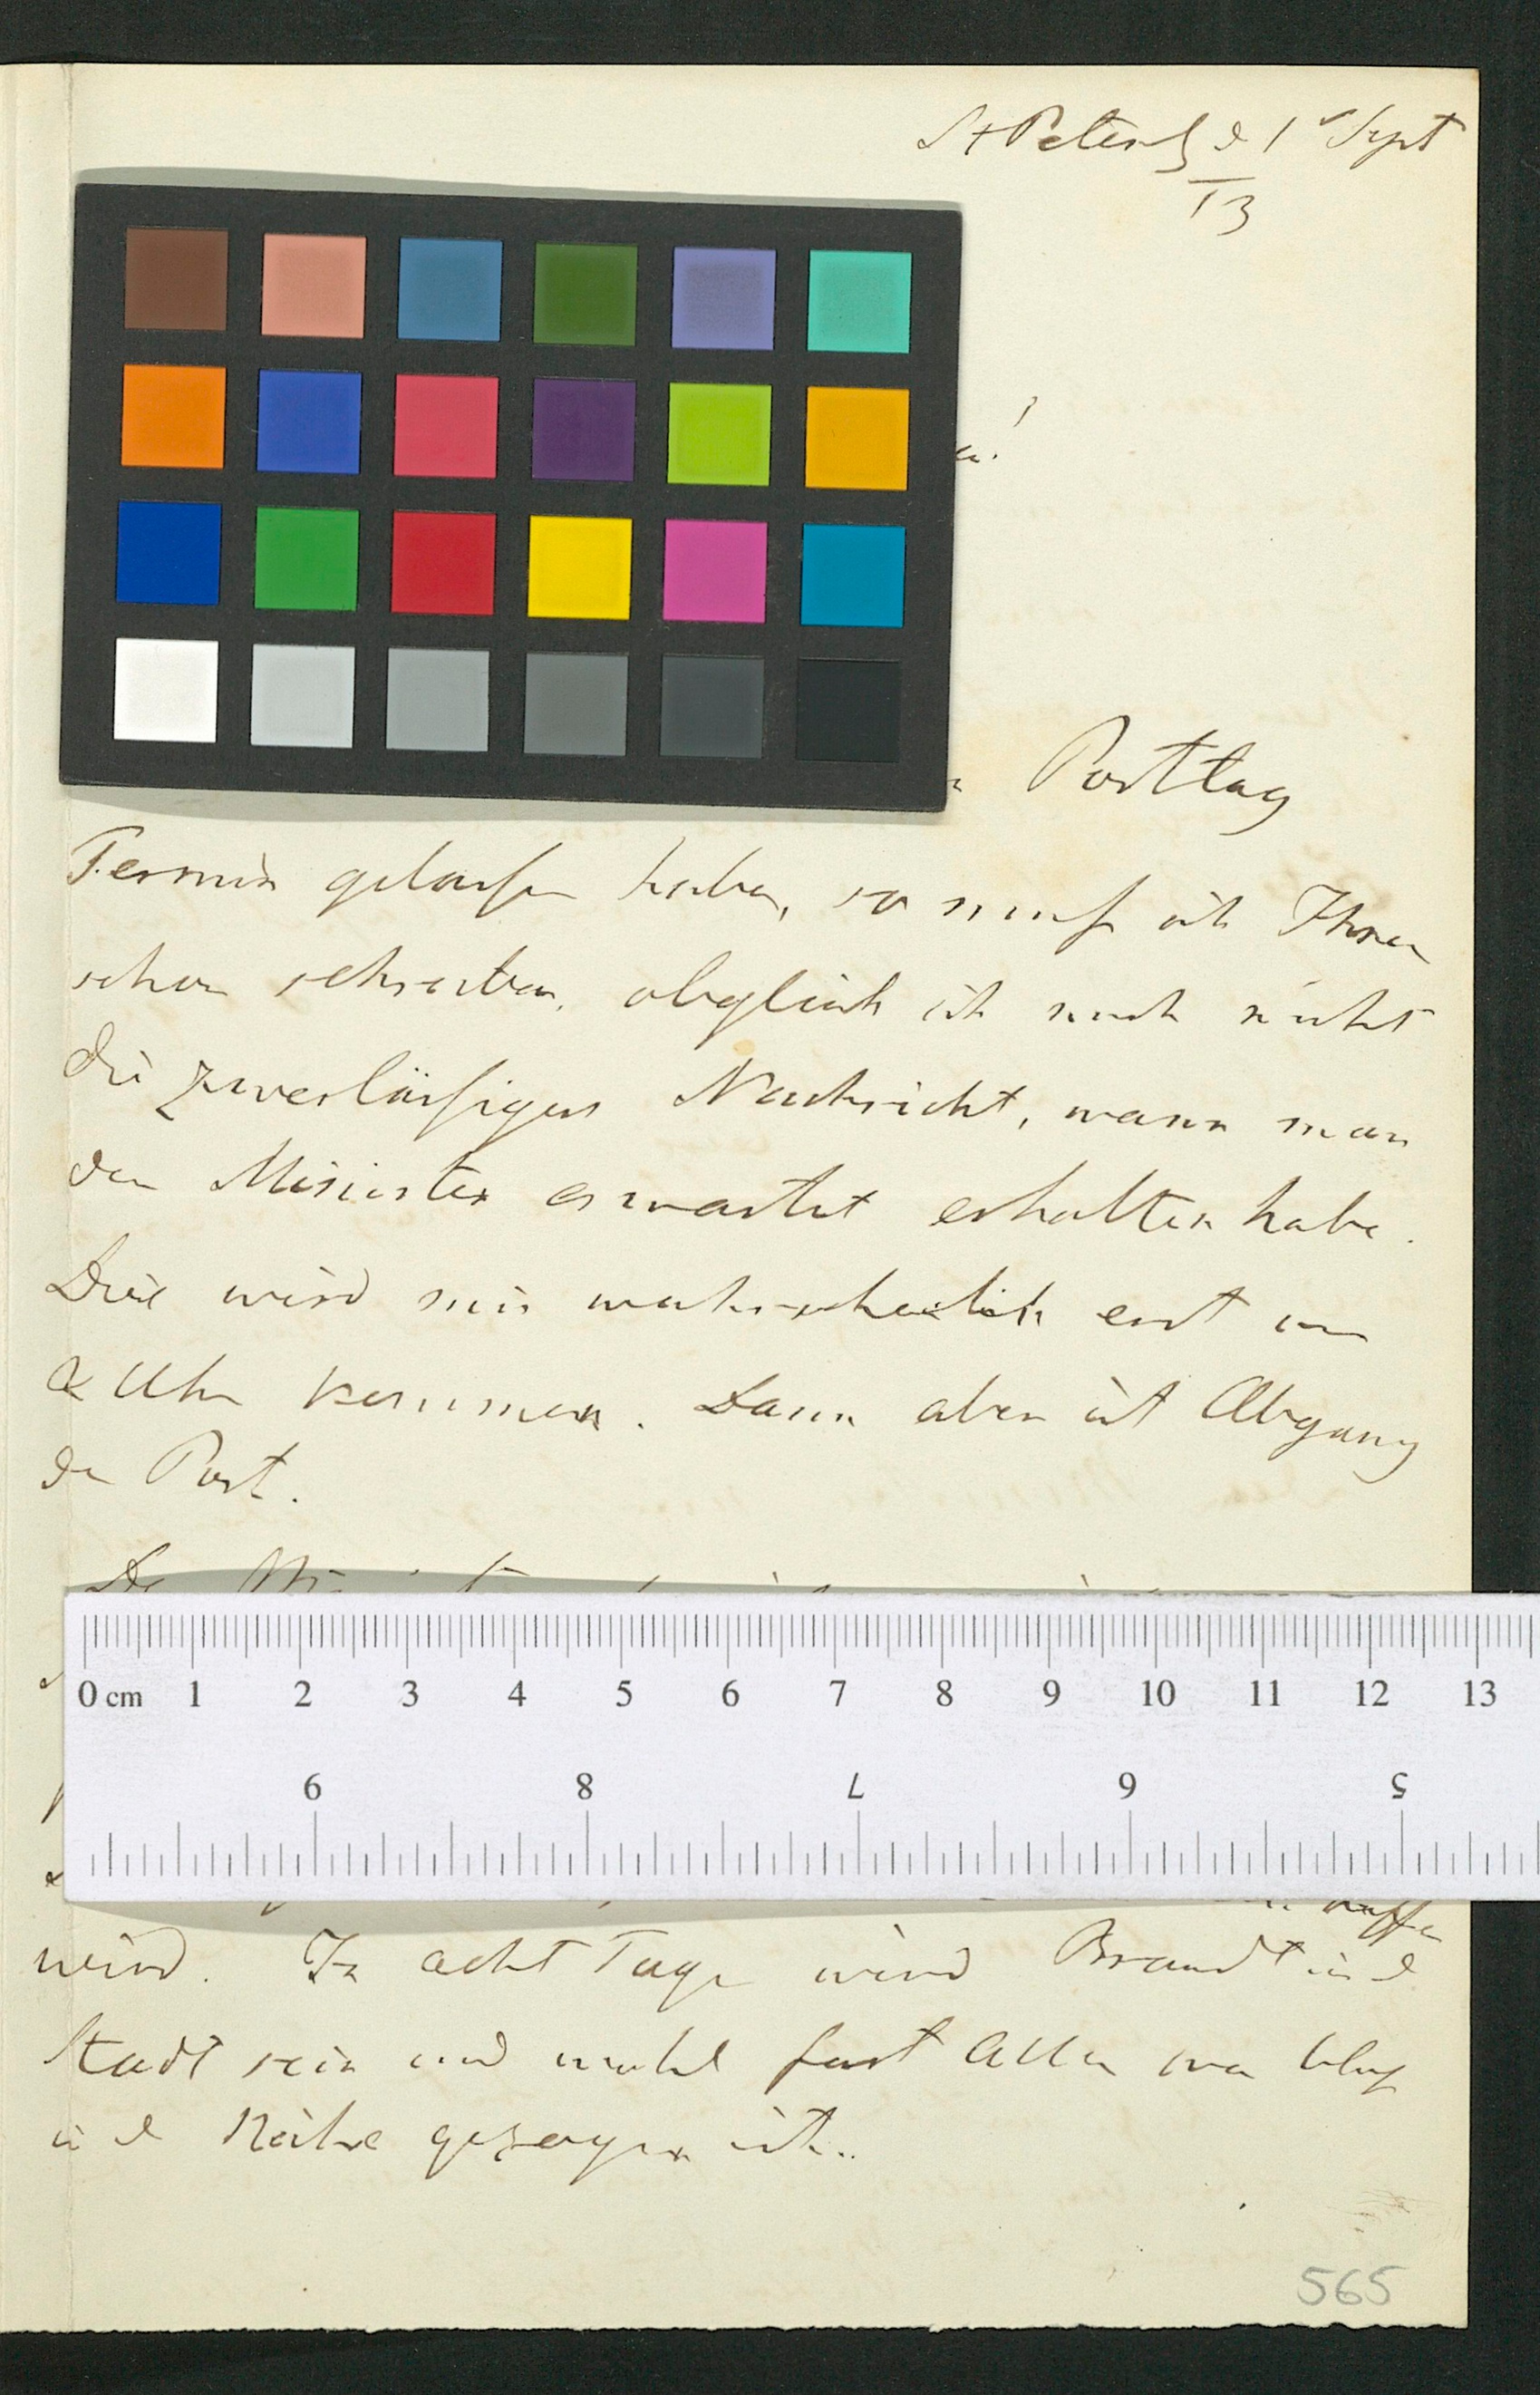 St Petersb d 1 Sept
13
Posttag
Termin gelassen haben, so muß ich Ihnen
schon schreiben, obgleich ich noch nicht
die zuverlässigen Nachricht, wann man
den Minister erwartet erhalten habe.
Dies wird mir wahrscheinlich erst um
2 Uhr kommen. Dann aber ist Abgang
der Post.
0 cm 1 2 3 4 5 6 7 8 9 10 11 12 13
9 8 7 6 5
wird. In acht Tage wird Brandt in d
Stadt sein und wohl fast Alle was bloß
in d Nähe gezogen ist.
565